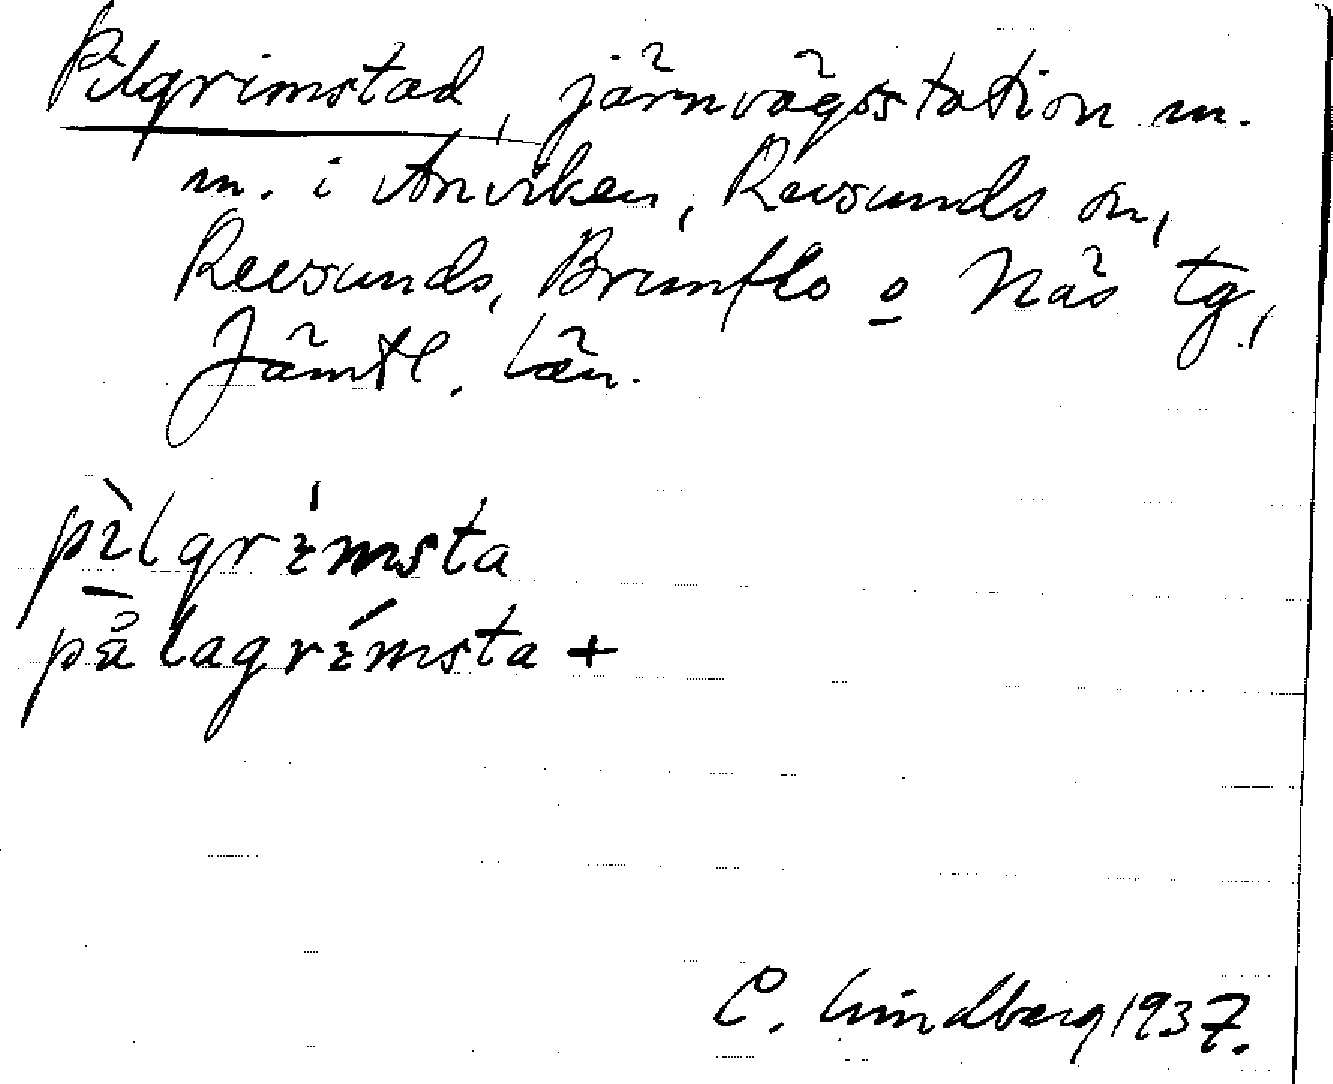 Pilgrimstad, järnvägsstation m.
m. i Anviken, Revsunds sn,
Revsunds, Brunflo o Näs tg,
Jämtl. län.
pìlgrímsta
på̀lagrímsta +
C. Lindberg 1937.